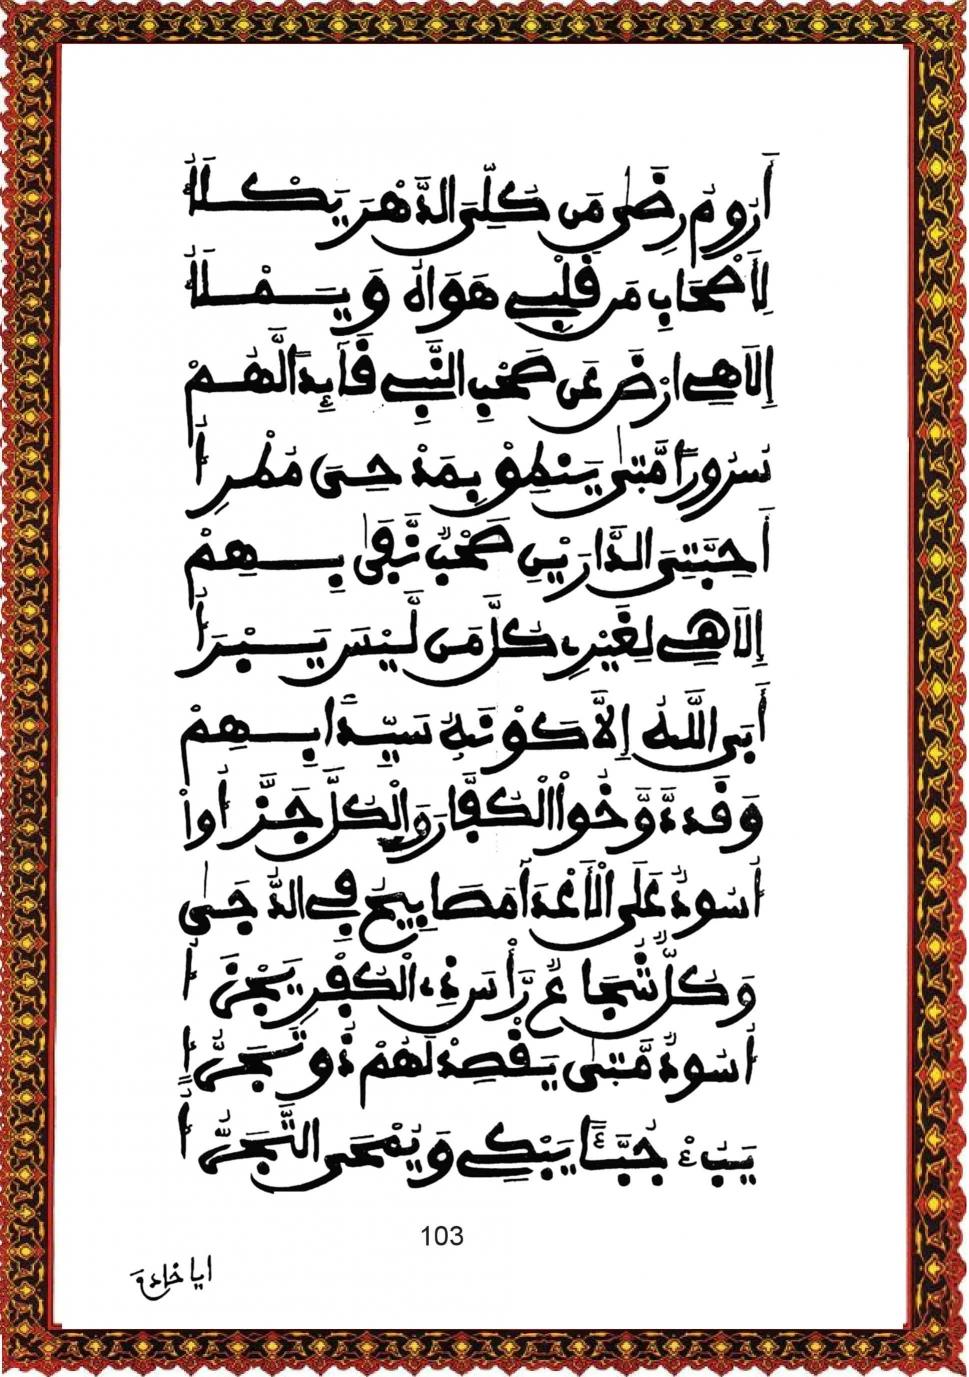 أَرُومُ رِضَى مَن كُلَّى الدَّهْرَ يَكْلَأُ
لِأَصْحَابِ مَن قَلْبِے هَوَاهُ وَيَمْلَأُ
إِلَاهِے ارْضَ عَن صَحْبِ النَّبِے فَآبِدًا لَّهُمْ
سُرُورًا مَّتَى يَنطِقْ بِمَدْحِىَ
أَحِبَّتِىَ الدَّارَيْنِ صَحْبٌ نَّفَى بِهِمْ
إِلَاهِے لِغَيْرِے كُلَّ مَن لَّيْسَ يَبْرَأُ
أَبَى اللَّهُ إِلَّا كَوْنَهُ سَيِّدًا بِهِمْ
وَقَدْ دَوَّخُواْ الْكُفَّارَ وَالْكُلَّ جَزَّأُواْ
أُسُودٌ عَلَى الْأَعْدَا مَصَابِيحُ فِى الدُّجَى
وَكُلُّ شُجَاعٍ رَّأْسَ ذِے الْكُفْرِ يَجْزَأُ
أُسُودٌ مَّتَى يَقْصِدْ لَهُمْ ذُو تَجَرُّؤٍ
يَبُؤْ جُبَّأً يَبْكِے وَيُمْحَى التَّجَرُّؤُ
103